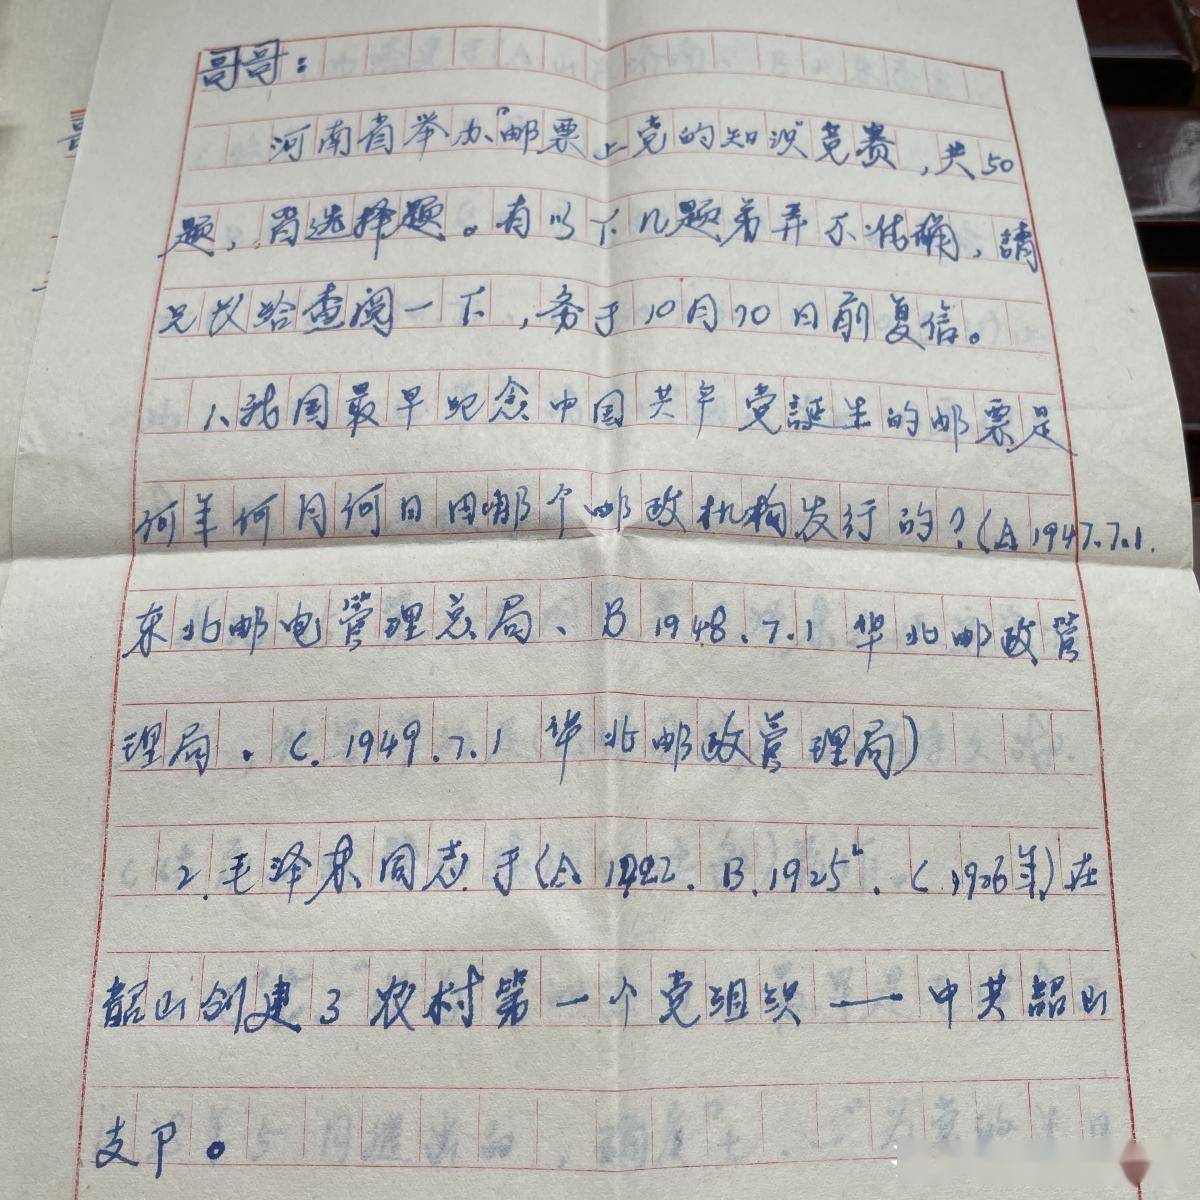 哥哥：
河南省举办“邮票上党的知识”竞赛，共50
题，尚选择题。有以下几题弟弄不准确，請
兄长给查阅一下，务于10月10日前复信。
1、我国最早纪念中国共产党誕生的邮票是
何年何月何日由哪个邮政机构发行的？（A 1947.7.1.
东北邮电管理总局、B 1948.7.1 华北邮政管
理局．C. 1949.7.1 华北邮政管理局）
2. 毛泽东同志于（A 1922. B. 1925. C. 1926年）在
韶山创建了农村第一个党组织——中共韶山
支卩。